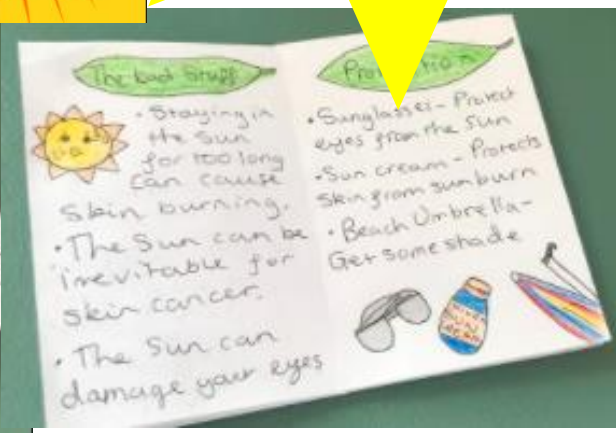 The bad stuff
• Staying in
the Sun
for too long
can cause
Skin burning.
• The Sun can be
inevitable for
skin cancer.
• The Sun can
damage your eyes
• Sunglasses - Protect
eyes from the Sun
• Sun cream - Protects
Skin from sun burn
• Beach Umbrella -
Get some shade
SUN
CREAM